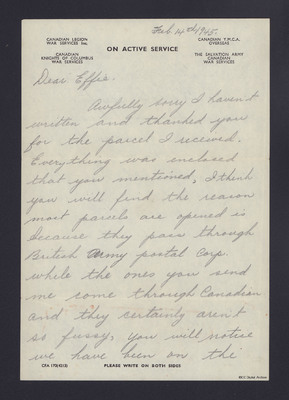 Feb. 4th 1945.
CANADIAN LEGION
WAR SERVICES Inc.
CANADIAN Y.M.C.A.
OVERSEAS
ON ACTIVE SERVICE
CANADIAN
KNIGHTS OF COLUMBUS
WAR SERVICES
THE SALVATION ARMY
CANADIAN
WAR SERVICES
Dear Effie.
Awfully sorry I haven't
written and thanked you
for the parcel I received.
Everything was enclosed
that you mentioned, I think
you will find the reason
most parcels are opened is
because they pass through
British Army postal Corp.
while the ones you send
me come through Canadian
and they certainly aren't
so fussy, you will notice
we have been on the
PLEASE WRITE ON BOTH SIDES